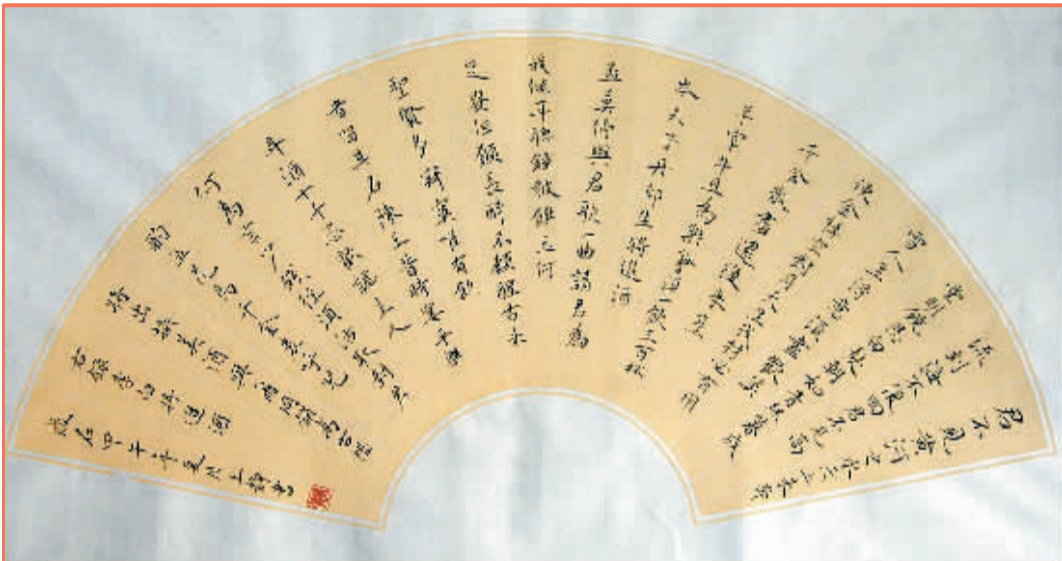 君不見黃河之水天上來奔
流到海不復回君不見高
堂明鏡悲白髮朝如青絲暮成
雪人生得意須盡歡莫
使金樽空對月天生我材必有用
千金散盡還復來烹
羊宰牛且為樂會須一飲三百杯
岑夫子丹邱生將進酒
杯莫停與君歌一曲請君為
我傾耳聽鐘鼓饌玉何
足貴但願長醉不願醒古來
聖賢多寂寞惟有飲
者留其名陳王昔時宴平樂
斗酒十千恣歡謔主人
何為言少錢徑須沽取對君
酌五花馬千金裘呼兒
將出換美酒與爾同銷萬古愁
右錄李白將進酒